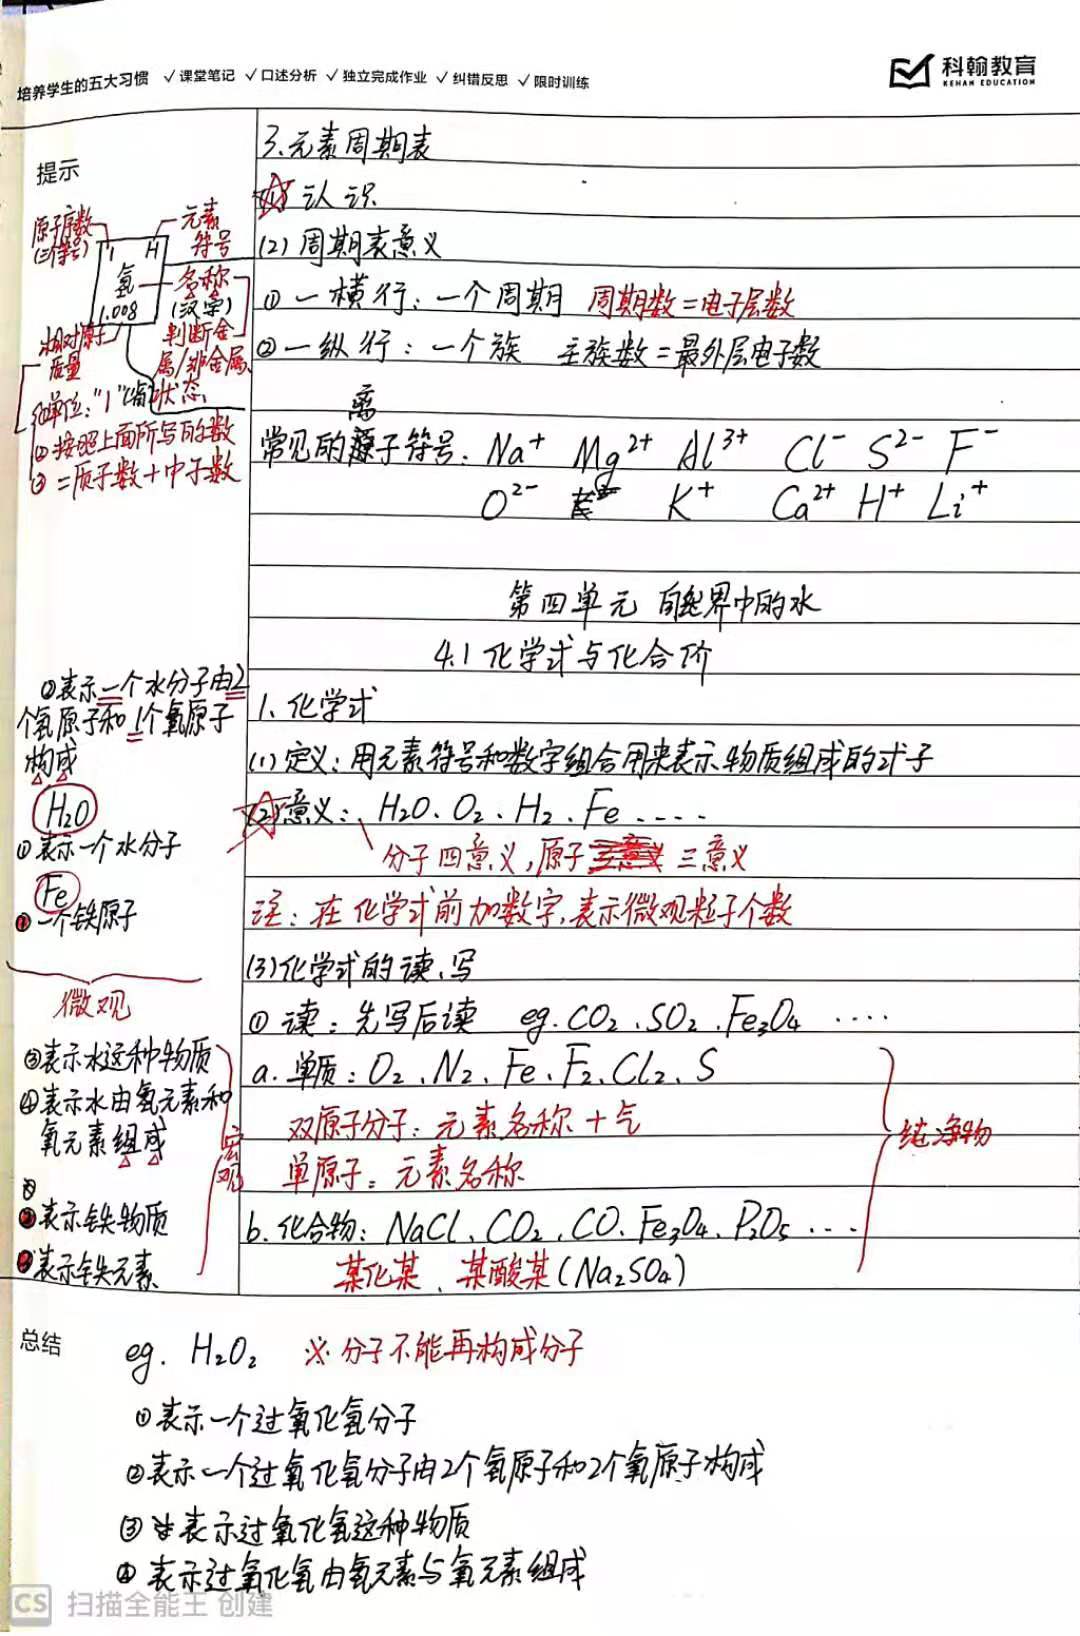 培养学生的五大习惯 ✓课堂笔记 ✓口述分析 ✓独立完成作业 ✓纠错反思 ✓限时训练
科翰教育
KEHAN EDUCATION
提示
原子序数
(三等号)
元素
符号
1 H
氢
1.008
名称
(汉字)
判断金
属/非金属、
状态
相对原子
质量
单位:"1"(省)
①按照上面所写的数
②=质子数+中子数
3.元素周期表
(1)认识
(2)周期表意义
①一横行:一个周期 周期数=电子层数
②一纵行:一个族 主族数=最外层电子数
离
常见的子符号: Na⁺ Mg²⁺ Al³⁺ Cl⁻ S²⁻ F⁻
O²⁻ K⁺ Ca²⁺ H⁺ Li⁺
第四单元 自然界中的水
4.1 化学式与化合价
②表示一个水分子由2
个氢原子和1个氧原子
构成
H₂O
①表示一个水分子
Fe
①一个铁原子
微观
③表示水这种物质
④表示水由氢元素和
氧元素组成
宏观
②表示铁物质
③表示铁元素
1.化学式
(1)定义:用元素符号和数字组合用来表示物质组成的式子
(2)意义: H₂O、O₂、H₂、Fe ····
分子四意义,原子三意义
注:在化学式前加数字,表示微观粒子个数
(3)化学式的读、写
①读:先写后读 eg.CO₂、SO₂、Fe₃O₄ ····
a.单质:O₂、N₂、Fe、F₂、Cl₂、S
双原子分子:元素名称+气
单原子:元素名称
b.化合物:NaCl、CO₂、CO、Fe₃O₄、P₂O₅ ···
某化某、某酸某(Na₂SO₄)
纯净物
总结
eg. H₂O₂ ※分子不能再构成分子
①表示一个过氧化氢分子
②表示一个过氧化氢分子由2个氢原子和2个氧原子构成
③表示过氧化氢这种物质
④表示过氧化氢由氢元素与氧元素组成
CS 扫描全能王 创建